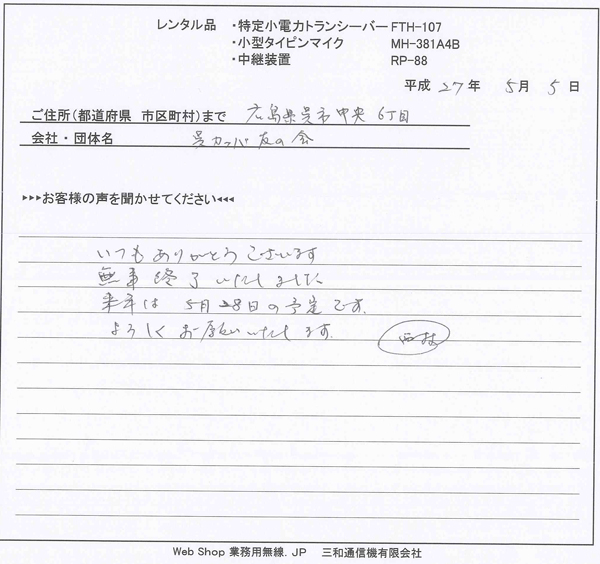 レンタル品 ・特定小電力トランシーバー FTH-107
・小型タイピンマイク MH-381A4B
・中継装置 RP-88
平成 27 年 5 月 5 日
ご住所(都道府県 市区町村)まで 広島県呉市中央6丁目
会社・団体名 呉カッパ友の会
▶▶▶お客様の声を聞かせてください◀◀◀
いつもありがとうございます
無事終了いたしました
来年は 5月28日の予定です.
よろしくお願いいたします.
Web Shop 業務用無線.JP 三和通信機有限会社